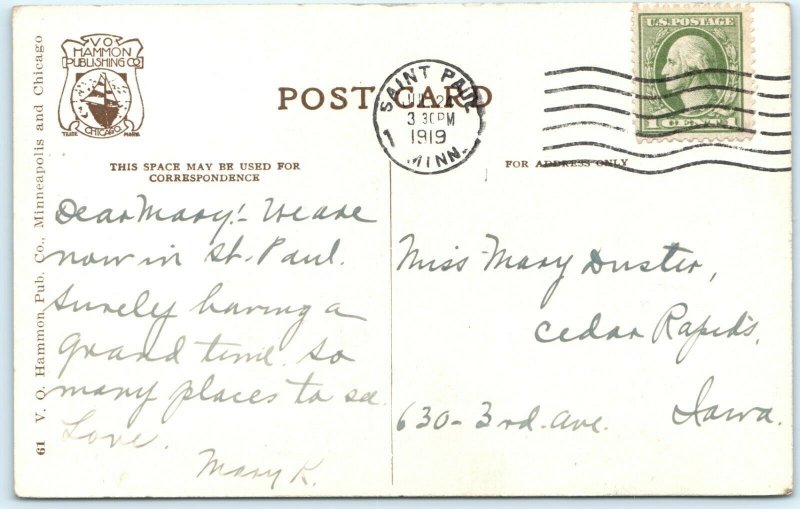 V O
HAMMON
PUBLISHING CO
CHICAGO
TRADE MARK
POST CARD
SAINT PAUL
3 30PM
1919
MINN.
1
U.S. POSTAGE
1 CENT 1
THIS SPACE MAY BE USED FOR
CORRESPONDENCE
FOR ADDRESS ONLY
61 V. O. Hammon Pub. Co., Minneapolis and Chicago
Dear Mary!- We are
now in St. Paul.
Surely having a
grand time. So
many places to see.
Love.
Mary K.
Miss Mary Duster,
Cedar Rapids,
630-3rd. Ave. Iowa.